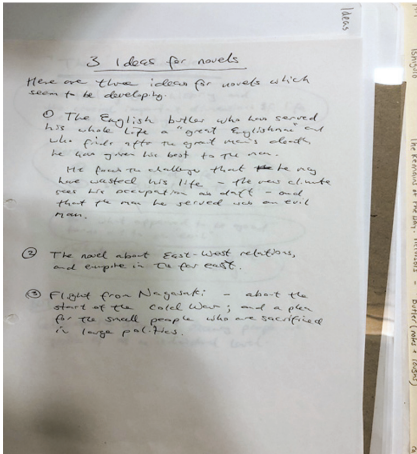 Ideas
3 Ideas for novels
Here are three ideas for novels which
seem to be developing.
① The English butler who has served
his whole life a "great Englishman" and
who finds after the great man's death
he has given his best to the man.
He faces the challenge that he may
have wasted his life – the new climate
sees his occupation as daft – and
that the man he served was an evil
man.
② The novel about East-West relations,
and empire in the far east.
③ Flight from Nagasaki – about the
start of the Cold War; and a plea
for the small people who are sacrificed
in large politics.
Ishiguro
The Remains of the Day